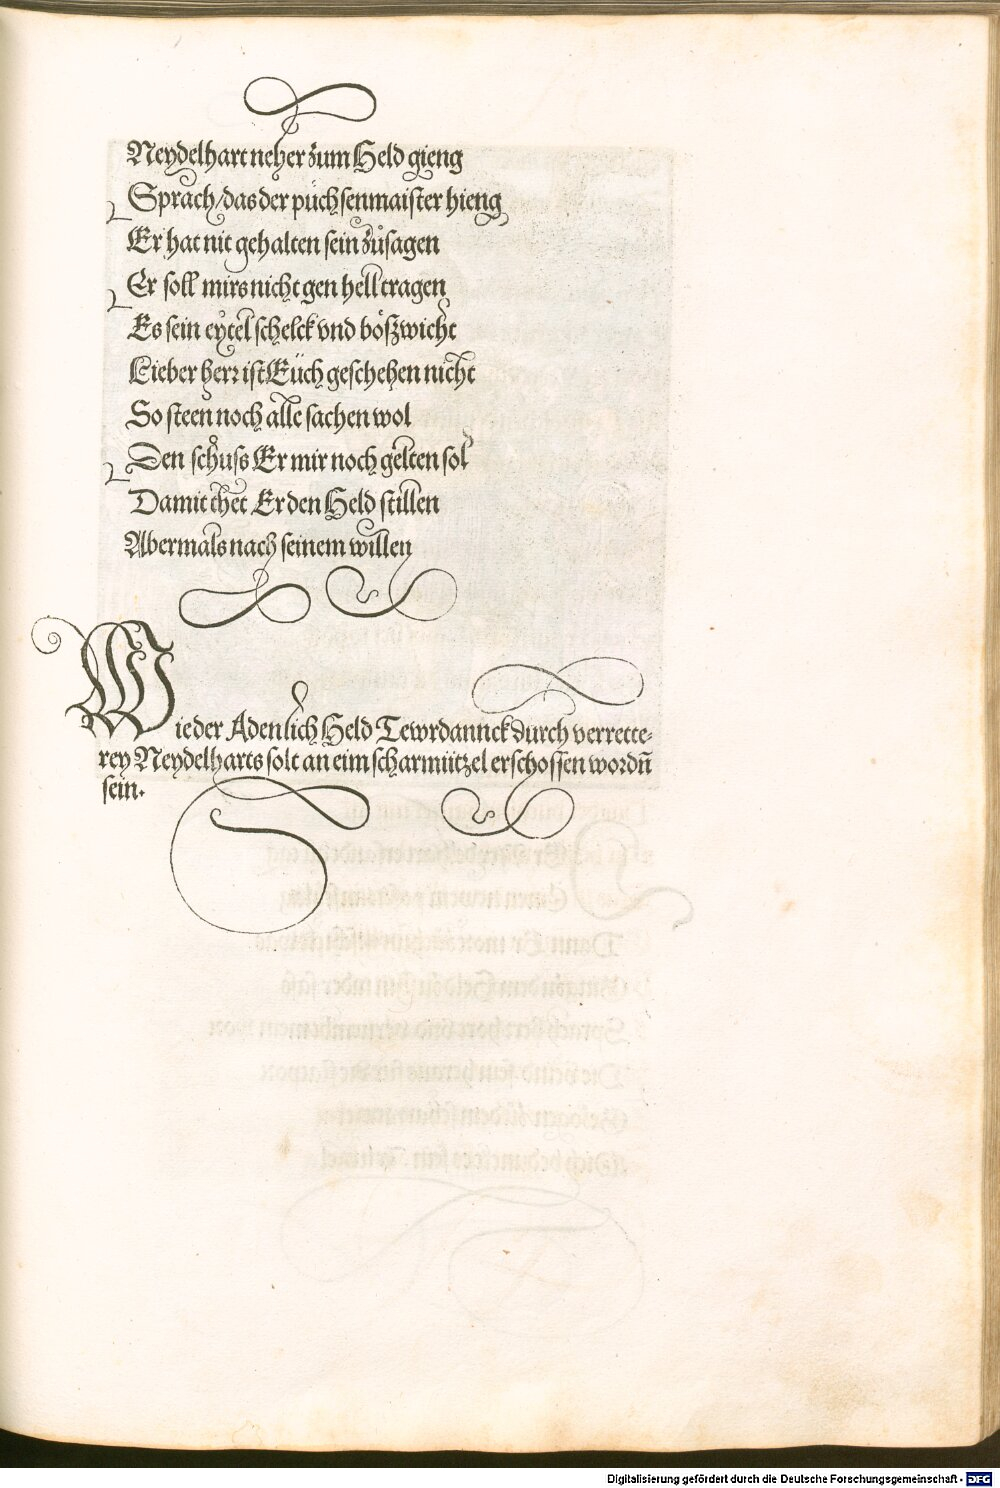 Neydelhart neher zum Held gieng
Sprach/das der püchsenmaister hieng
Er hat nit gehalten sein zůsagen
Er soll mirs nicht gen hell tragen
Es sein eytel schelck vnd bößwicht
Lieber herr ist Eüch geschehen nicht
So steen noch alle sachen wol
Den schuss Er mir noch gelten sol
Damit thet Er den Held stillen
Abermals nach seinem willen
Wie der Adenlich Held Tewrdannck durch verrette-
rey Neydelharts solt an eim scharmützel erschossen wordn̄
sein.
Digitalisierung gefördert durch die Deutsche Forschungsgemeinschaft - DFG